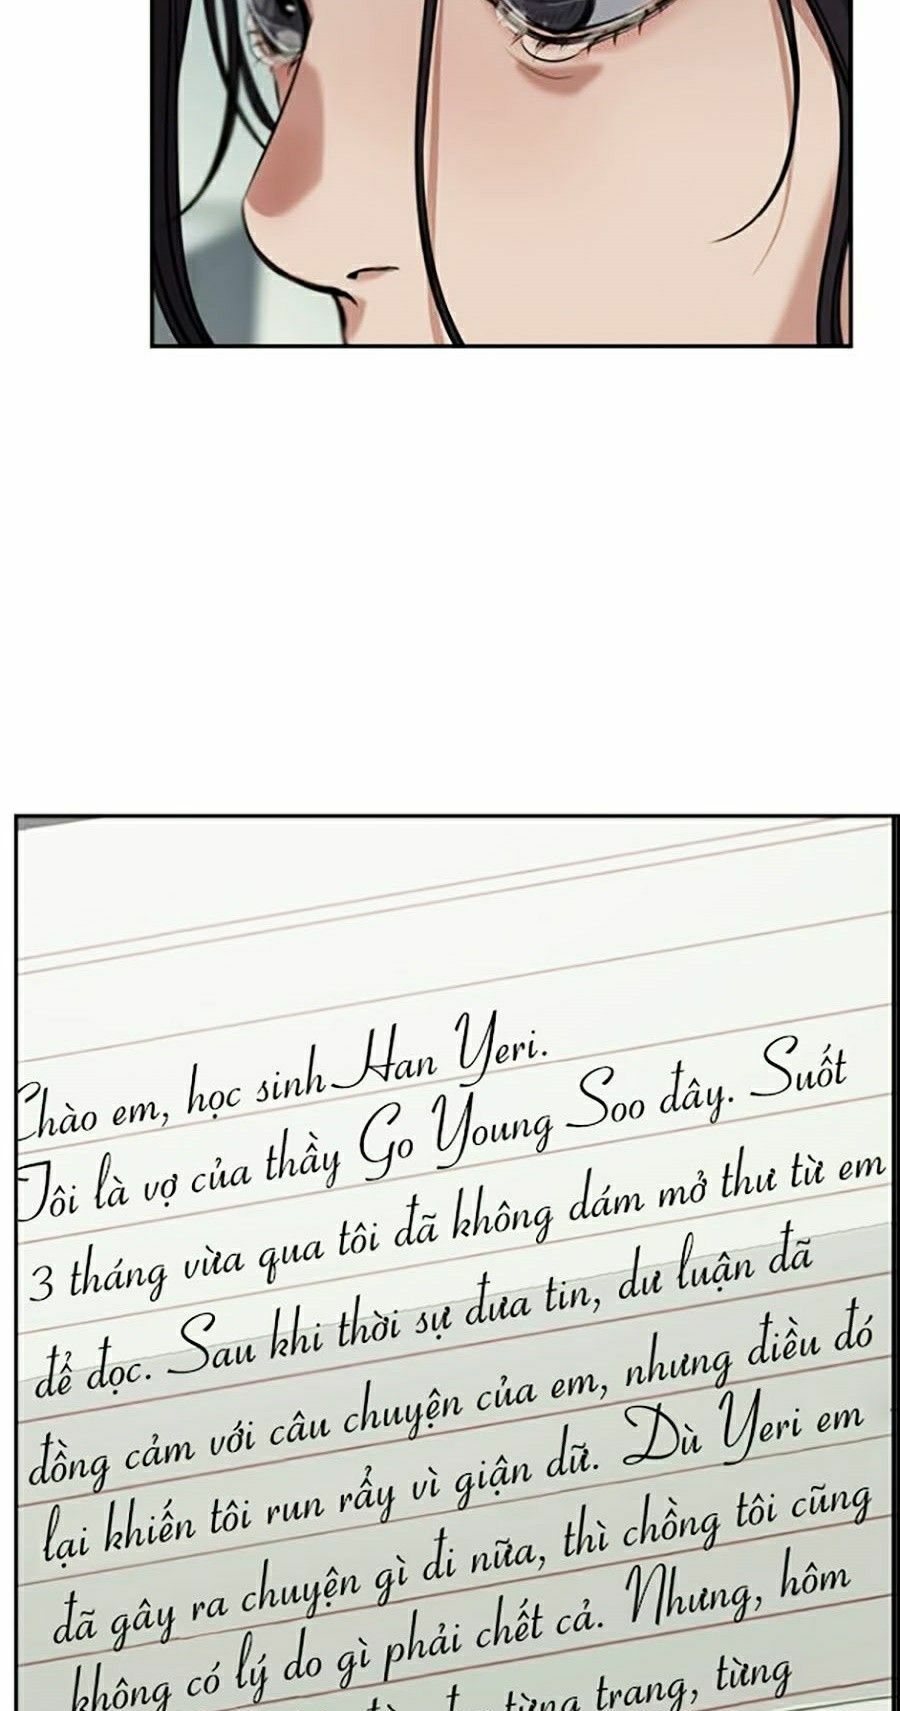 Chào em, học sinh Han Yeri.
Tôi là vợ của thầy Go Young Soo đây. Suốt
3 tháng vừa qua tôi đã không dám mở thư từ em
để đọc. Sau khi thời sự đưa tin, dư luận đã
đồng cảm với câu chuyện của em, nhưng điều đó
lại khiến tôi run rẩy vì giận dữ. Dù Yeri em
đã gây ra chuyện gì đi nữa, thì chồng tôi cũng
không có lý do gì phải chết cả. Nhưng, hôm
từng trang, từng